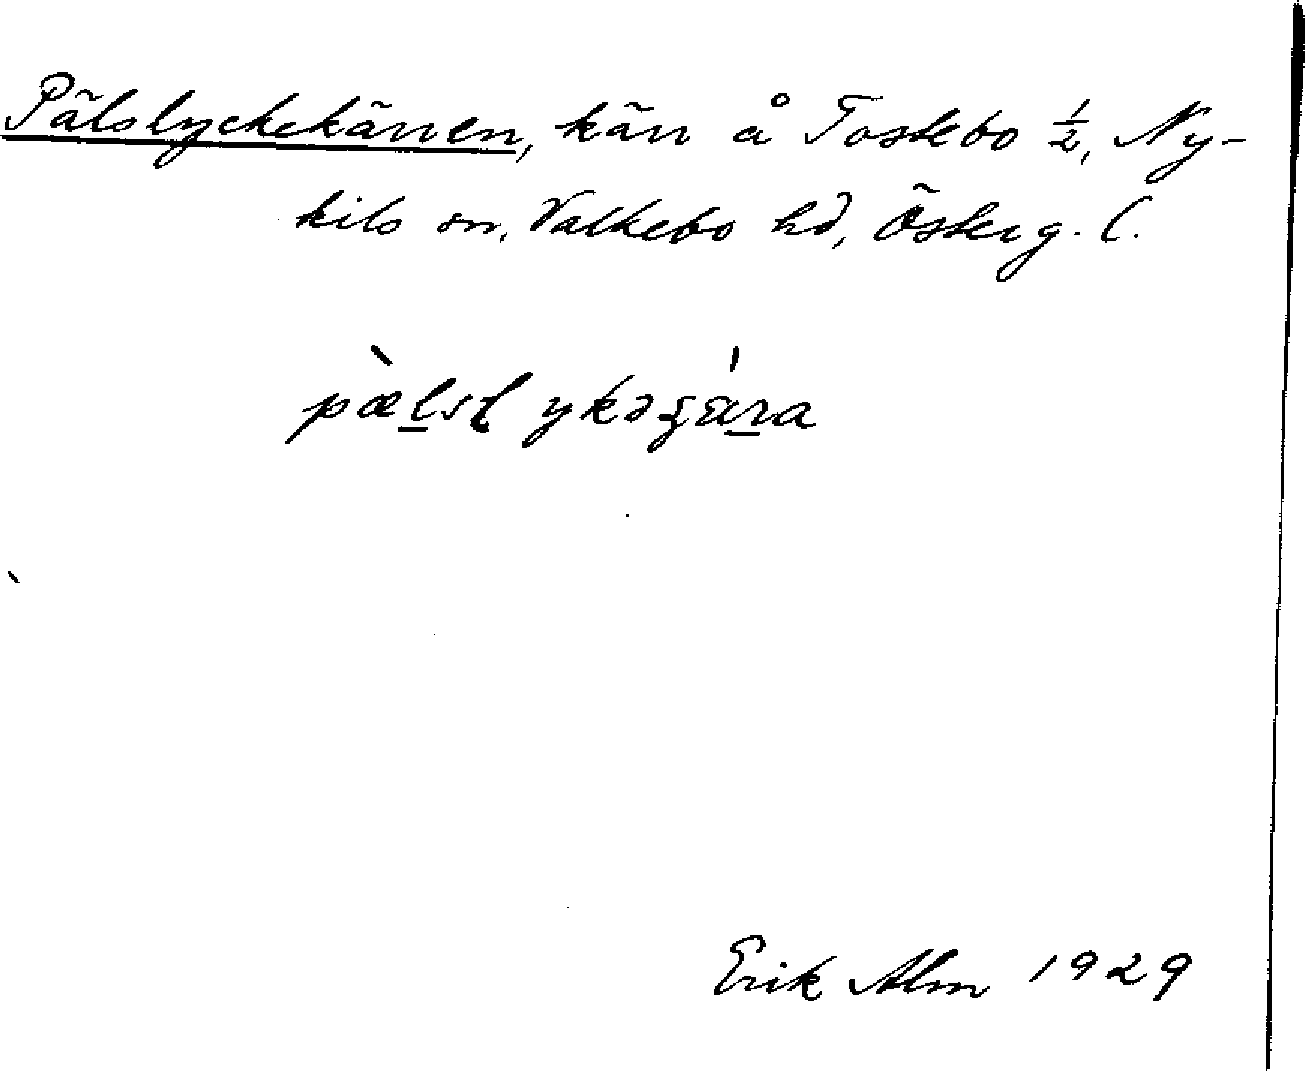 Pälslyckekärren, kärr å Toskebo ½, Ny-
kils sn, Valkebo hd, Österg. l.
pæ̀lslykəɕä́ra
Erik Alm 1929